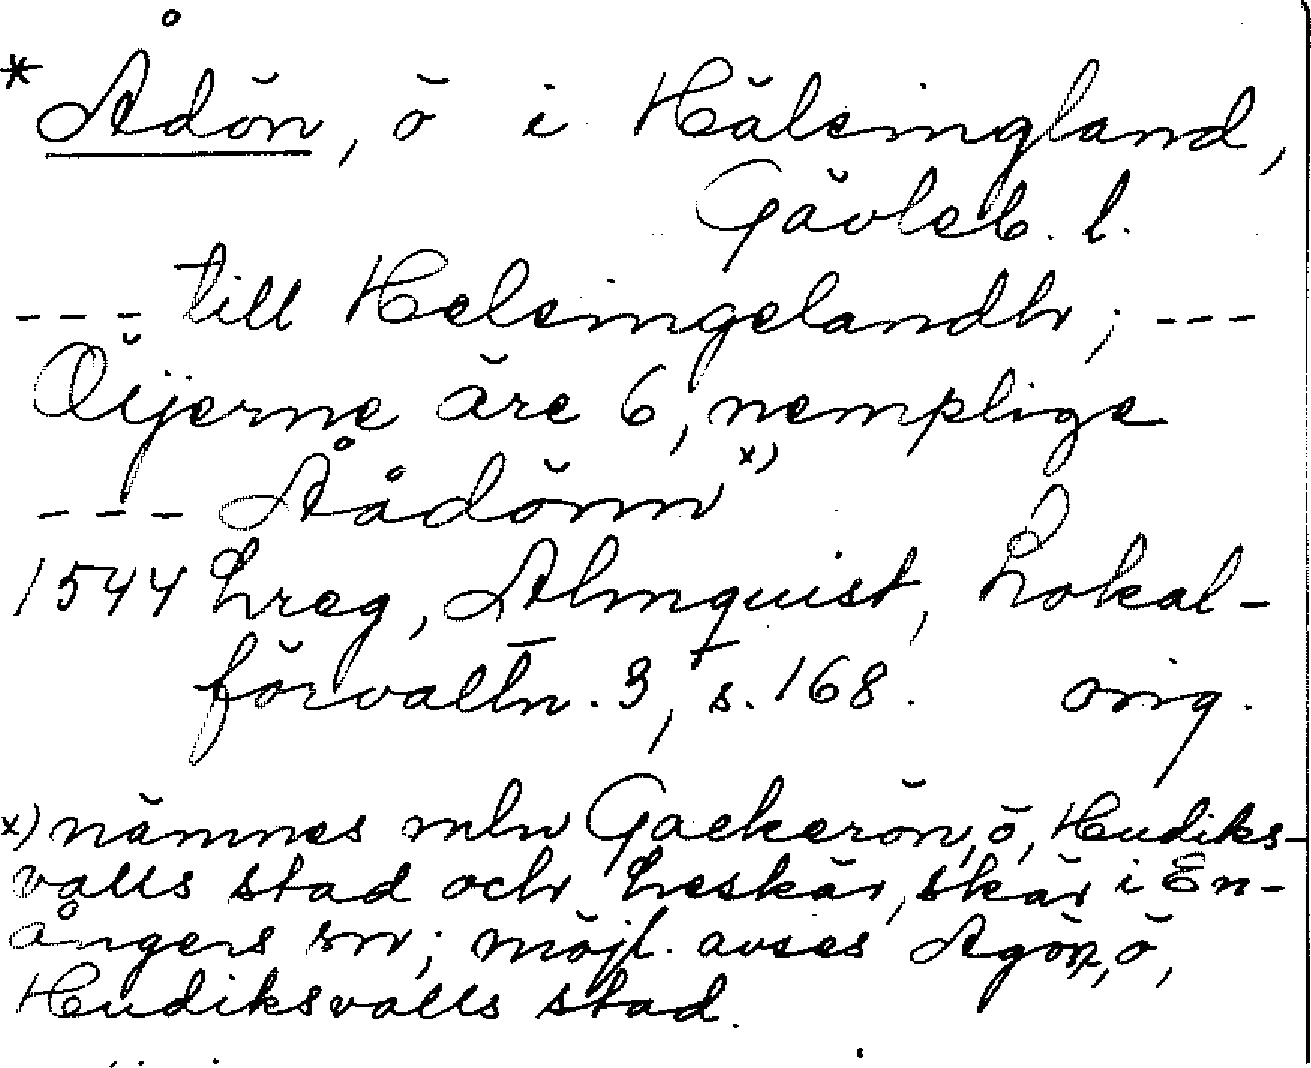 * Ådön, ö i Hälsingland,
Gävleb. l.
--- till Helsingelandh; ---
Öijerne äre 6, nemplige
--- Åådönn x)
1544 hreg, Almquist, Lokal-
förvaltn. 3, s. 168. orig.
x) nämnes mln Gackerön, ö, Hudiks-
valls stad och Leskär, skär i En-
ångers sn; möjl. avses Agön, ö,
Hudiksvalls stad.